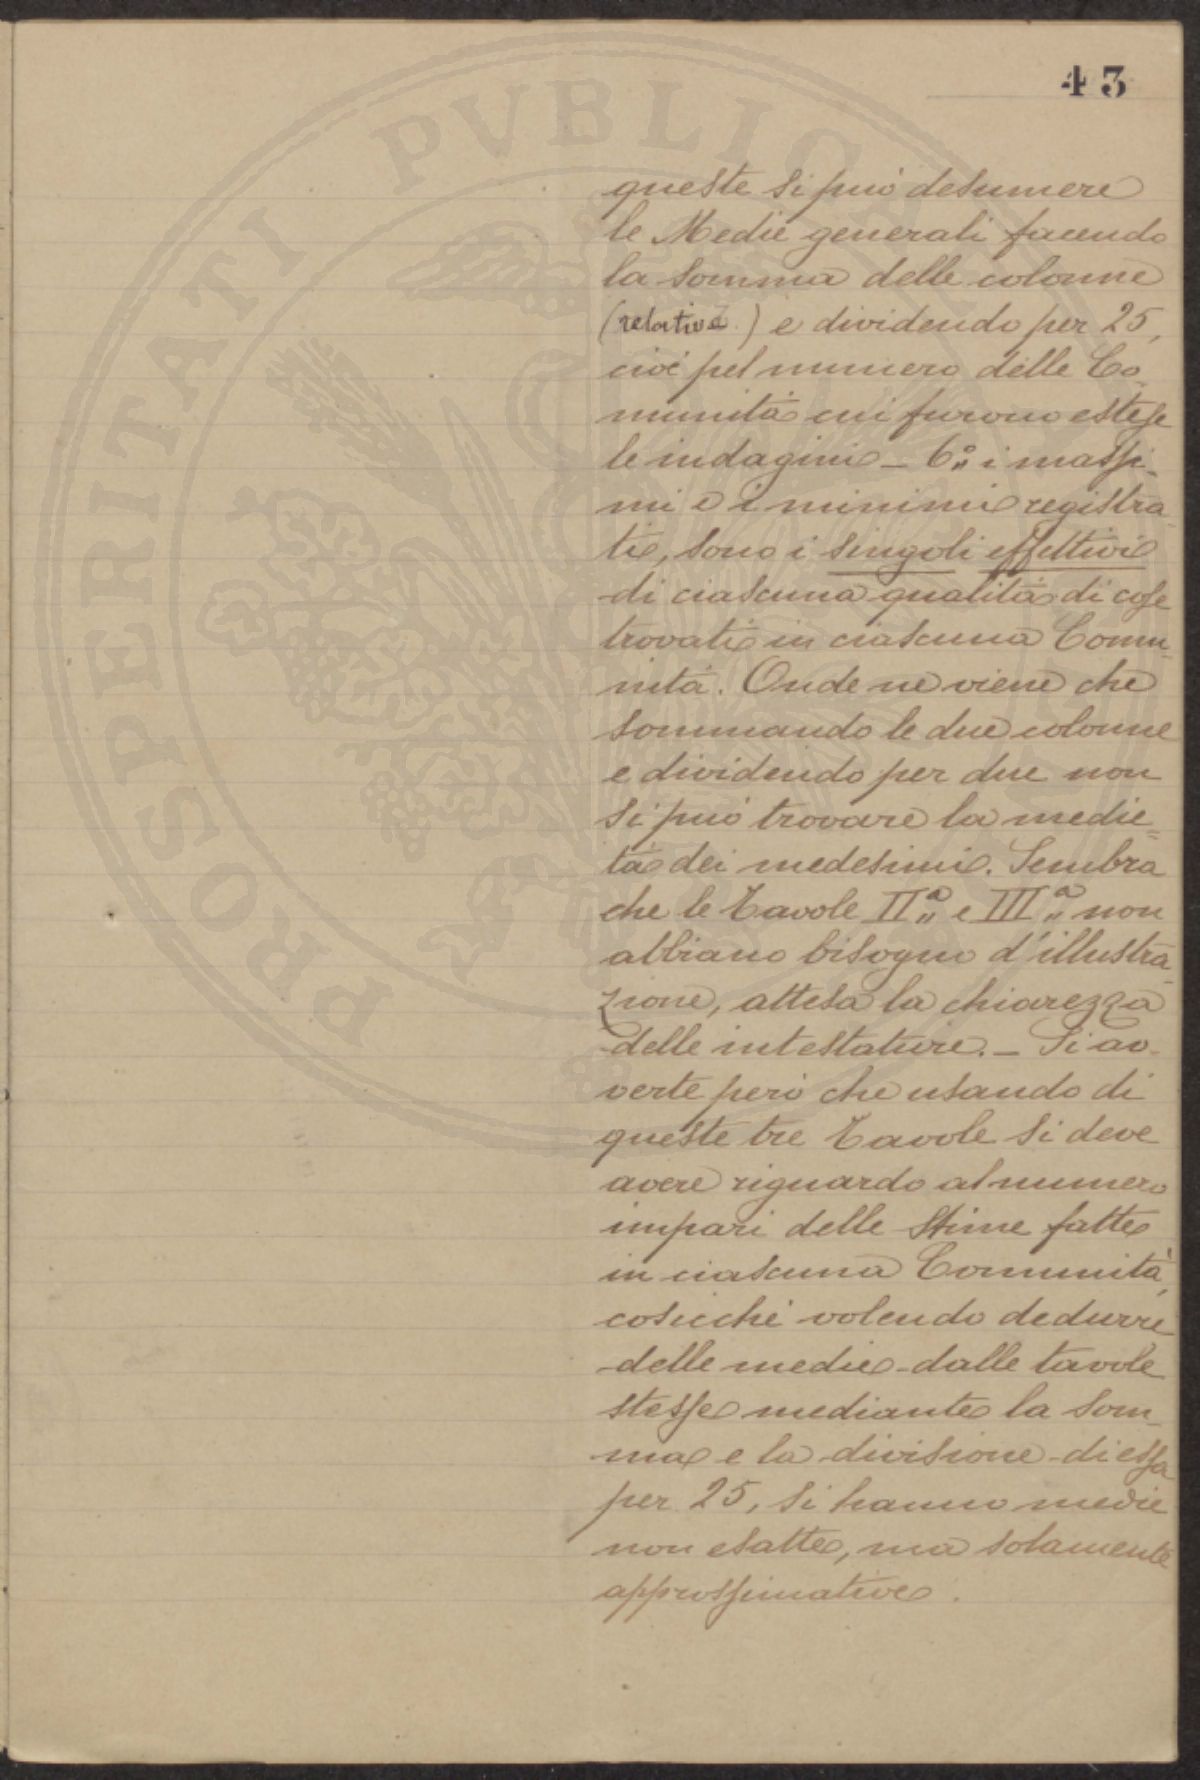 43
PROSPERITATI PVBLICAE
queste si può desumere
le Medie generali facendo
la somma delle colonne
(relative) e dividendo per 25,
cioè pel numero delle Co-
munità cui furono estese
le indagini – 6.° i massi-
mi e i minimi registra-
ti, sono i singoli effettivi
di ciascuna qualità di cose
trovati in ciascuna Comu-
nità. Onde ne viene che
sommando le due colonne
e dividendo per due non
si può trovare la medie-
tà dei medesimi. Sembra
che le Tavole IIª e IIIª non
abbiano bisogno d'illustra-
zione, attesa la chiarezza
delle intestature. – Si av-
verte però che usando di
queste tre Tavole si deve
avere riguardo al numero
impari delle stime fatte
in ciascuna Comunità,
cosicchè volendo dedurre
delle medie dalle tavole
stesse mediante la som-
ma e la divisione di essa
per 25, si hanno medie
non esatte, ma solamente
approssimative.